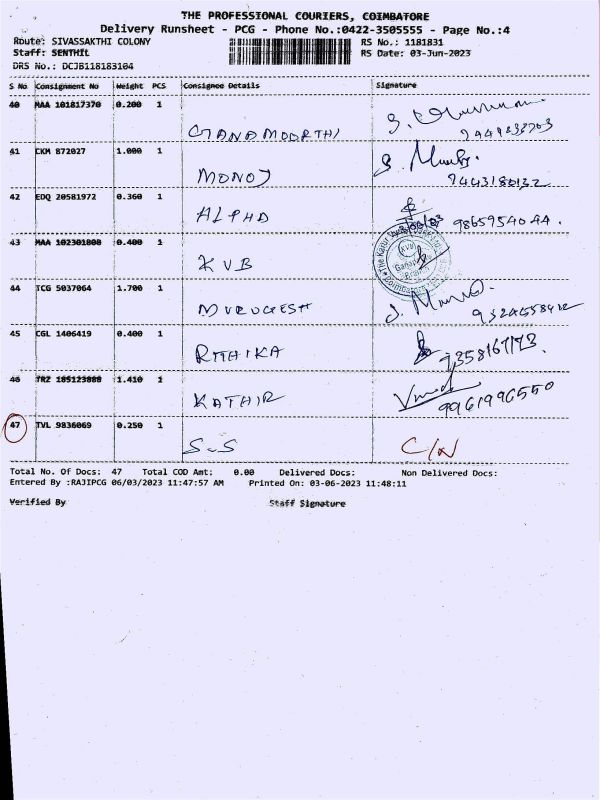 THE PROFESSIONAL COURIERS, COIMBATORE
Delivery Runsheet - PCG - Phone No.:0422-3505555 - Page No.:4
Route: SIVASSAKTHI COLONY RS No.: 1181831
Staff: SENTHIL RS Date: 03-Jun-2023
DRS No.: DCJB118183104
S No Consignment No Weight PCS Consignee Details Signature
40 MAA 101817370 0.200 1
GNANAMOORTHI
41 CKM 872027 1.000 1
MONOJ
9443180132
42 EDQ 20581972 0.360 1
ALPHA
9865954044.
43 MAA 102301808 0.400 1
KVB
44 TCG 5037064 1.700 1
MURUGESH
9324558412
45 CGL 1406419 0.400 1
RITHIKA
46 TRZ 185123088 1.410 1
KATHIR
9961996550
47 TVL 9836069 0.250 1
S-S C/N
Total No. Of Docs: 47 Total COD Amt: 0.00 Delivered Docs: Non Delivered Docs:
Entered By :RAJIPCG 06/03/2023 11:47:57 AM Printed On: 03-06-2023 11:48:11
Verified By Staff Signature